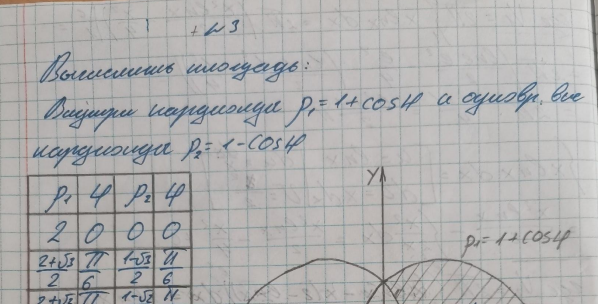 + №3
Вычислить площадь:
Внутри кардиоиды ρ₁ = 1+cosφ и одновр. вне
кардиоиды ρ₂ = 1-cosφ
ρ₁ φ ρ₂ φ
2 0 0 0
2+√3/2 π/6 1-√3/2 π/6
2+√3 π 1-√2 π
y
ρ₁=1+cosφ